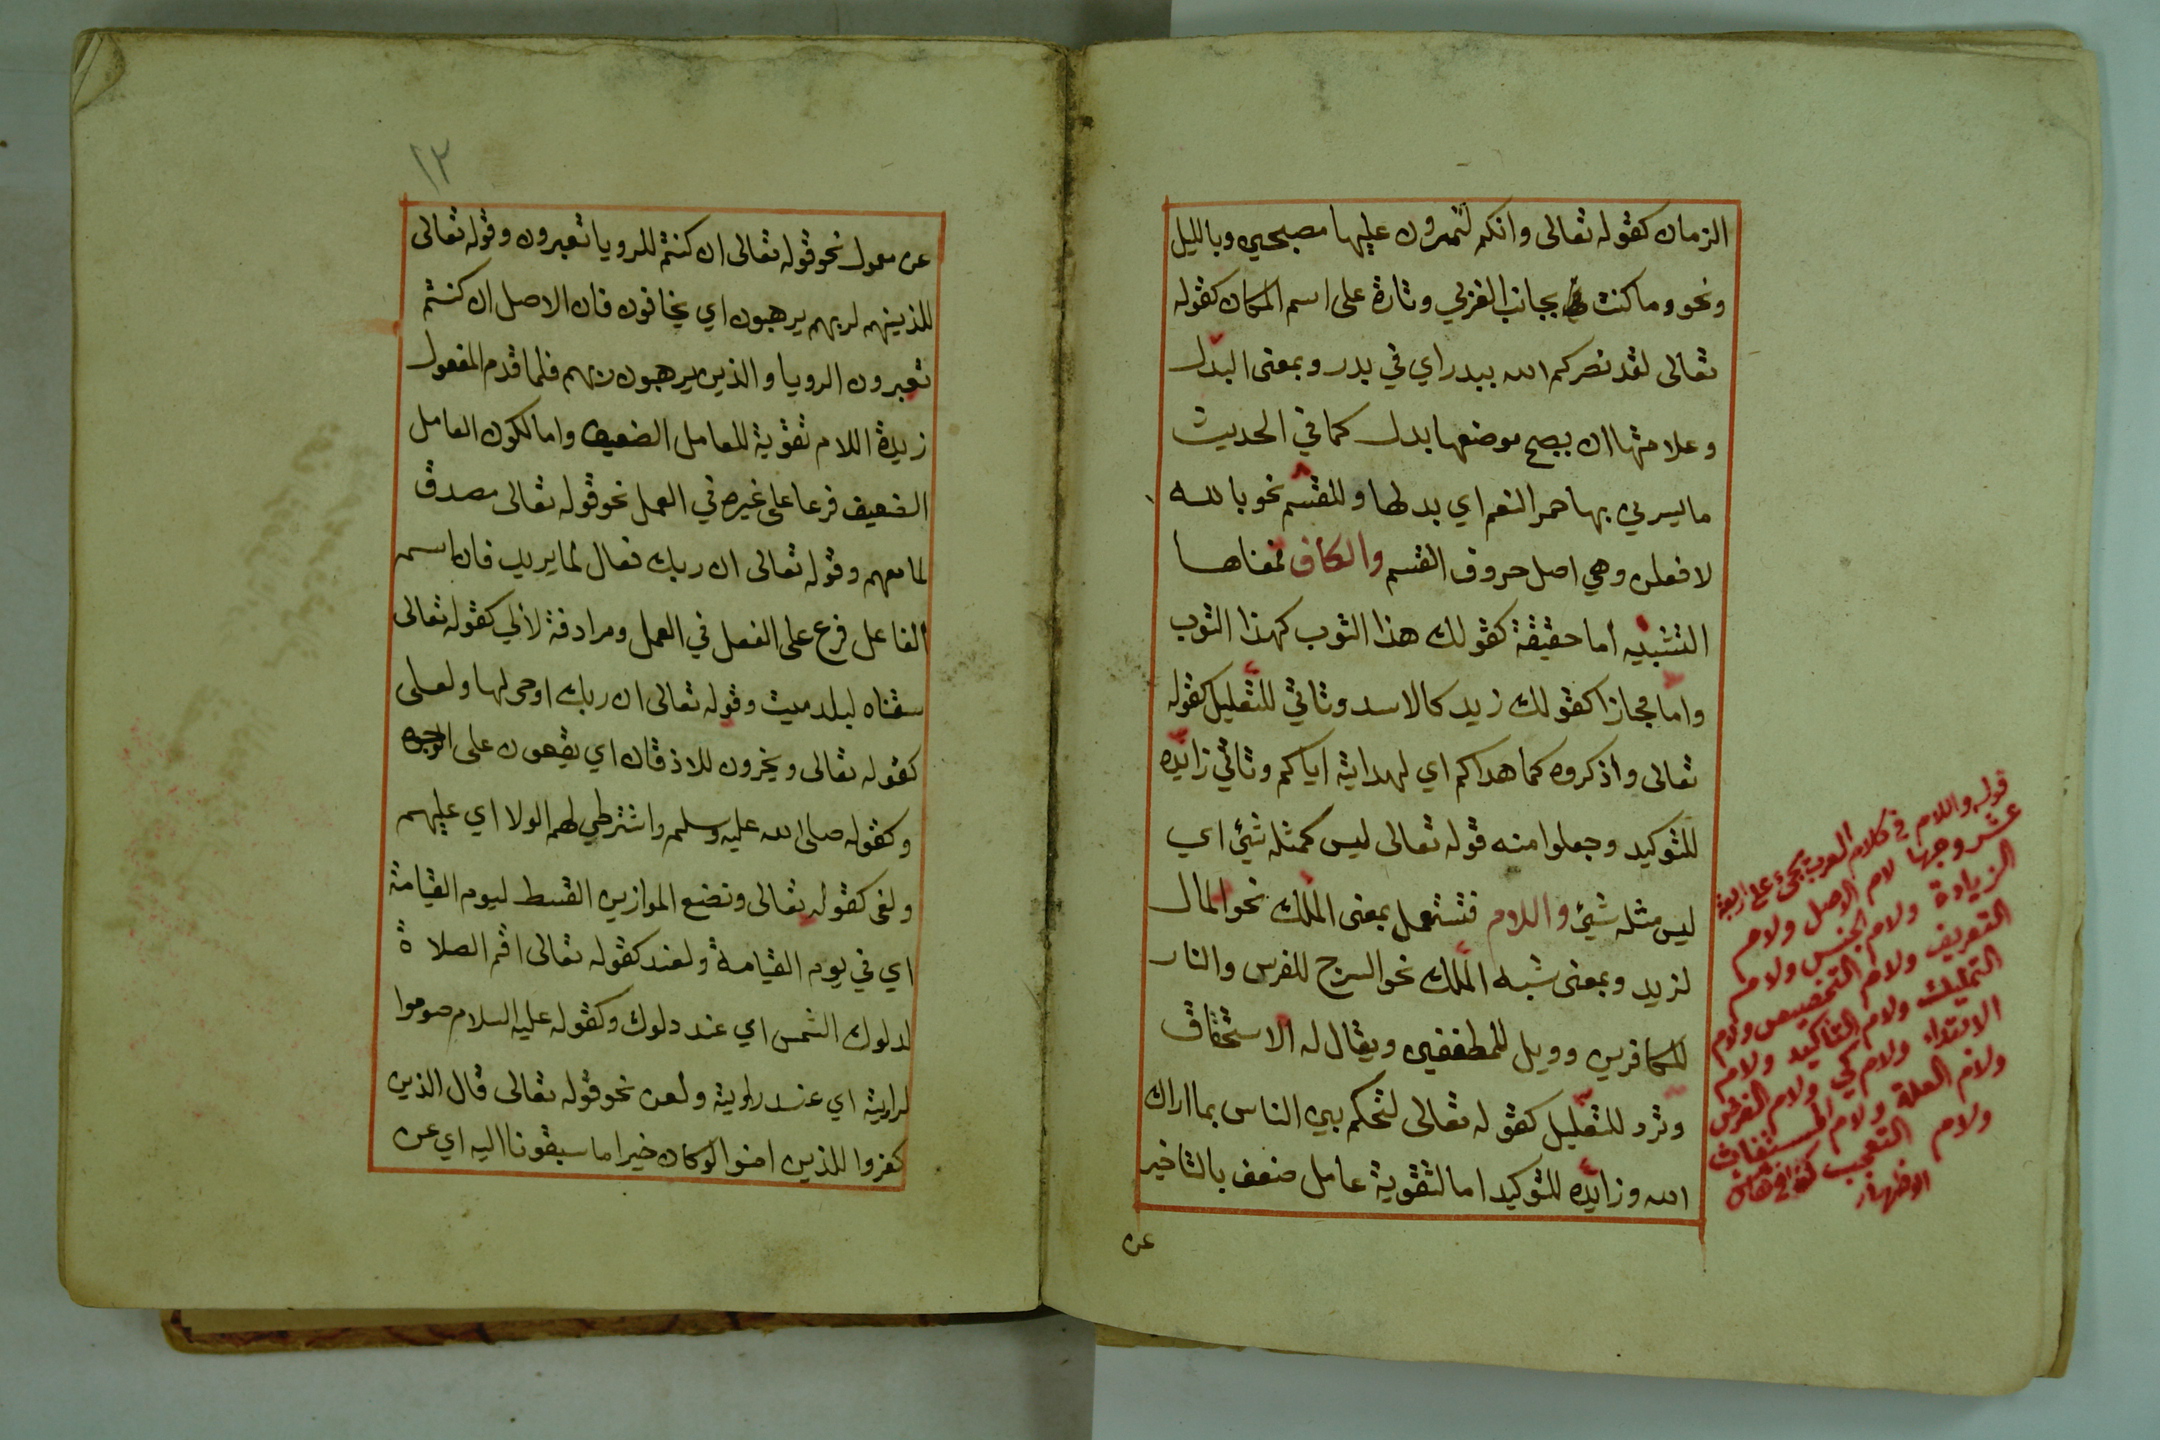 الزمان كقوله تعالى وانكم لتمرون عليها مصبحين وبالليل
ونحو وما كنت بجانب الغربي وتارة على اسم المكان كقوله
تعالى لقد نصركم الله ببدر اي في بدر وبمعنى البدل
وعلامتها ان يصح موضعها بدل كما في الحديث
ما يسرني بها حمر النعم اي بدلها وللقسم نحو بالله
لافعلن وهي اصل حروف القسم والكاف فمعناها
التشبيه اما حقيقة كقولك هذا الثوب كهذا الثوب
واما مجازا كقولك زيد كالاسد وتاتي للتعليل كقوله
تعالى واذكروه كما هداكم اي لهدايته اياكم وتاتي زايده
للتوكيد وجعلوا منه قوله تعالى ليس كمثله شئ اي
ليس مثله شئ واللام فتستعمل بمعنى الملك نحو المال
لزيد وبمعنى شبه الملك نحو السرج للفرس والنار
للكافرين وويل للمطففين ويقال له الاستحقاق
وترد للتعليل كقوله تعالى لتحكم بين الناس بما اراك
الله وزايده للتوكيد اما لتقوية عامل ضعف بالتاخير
عن
قوله واللام في كلام العرب يجئ على اربعة
عشر وجها لام الاصل ولام
الزيادة ولام الجنس ولام
التعريف ولام التخصيص ولام
التمليك ولام التاكيد ولام
الابتداء ولام كي ولام الغرض
ولام العلة ولام المستغاث
ولام التعجب كذا في هامش
الاظهار
١٣
عن معمول نحو قوله تعالى ان كنتم للرويا تعبرون وقوله تعالى
للذينهم لربهم يرهبون اي يخافون فان الاصل ان كنتم
تعبرون الرويا والذين يرهبون ربهم فلما قدم المفعول
زيدة اللام تقوية للعامل الضعيف واما لكون العامل
الضعيف فرعا على غيره في العمل نحو قوله تعالى مصدق
لما معهم وقوله تعالى ان ربك فعال لما يريد فان اسم
الفاعل فرع على الفعل في العمل ومرادفة لالي كقوله تعالى
سقناه لبلد ميت وقوله تعالى ان ربك اوحى لها ولعلى
كقوله تعالى ويخرون للاذقان اي يقعون على الوجوه
وكقوله صلى الله عليه وسلم واشترطي لهم الولا اي عليهم
ولفى كقوله تعالى ونضع الموازين القسط ليوم القيامة
اي في يوم القيامة ولعند كقوله تعالى اقم الصلاة
لدلوك الشمس اي عند دلوك وكقوله عليه السلام صوموا
لرايته اي عند راويته ولعن نحو قوله تعالى قال الذين
كفروا للذين امنوا لو كان خيرا ما سبقونا اليه اي عن